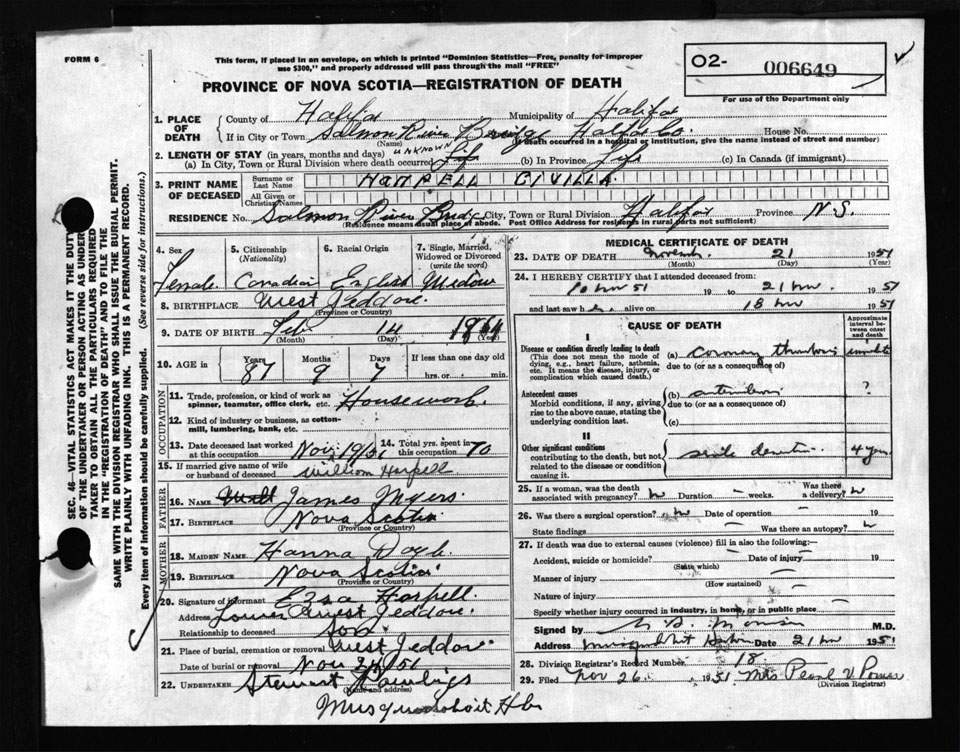 FORM 6
This form, if placed in an envelope, on which is printed "Dominion Statistics—Free, penalty for improper
use $300," and properly addressed will pass through the mail "FREE"
O2- 006649
PROVINCE OF NOVA SCOTIA—REGISTRATION OF DEATH
For use of the Department only
1. PLACE OF DEATH
County of Halifax Municipality of Halifax
If in City or Town Salmon River Bridge Halifax Co. House No.
(Name) (If death occurred in a hospital or institution, give the name instead of street and number)
2. LENGTH OF STAY (in years, months and days) UNKNOWN
(a) In City, Town or Rural Division where death occurred Life (b) In Province Life (c) In Canada (if immigrant)
3. PRINT NAME OF DECEASED
Surname or Last Name HARPELL CIVILLA.
All Given or Christian Names
RESIDENCE No. Salmon River Bridge City, Town or Rural Division Halifax Province N.S.
(Residence means usual place of abode. Post Office Address for residents in rural parts not sufficient)
4. Sex 5. Citizenship (Nationality) 6. Racial Origin 7. Single, Married, Widowed or Divorced (write the word)
Female Canadian English Widow
8. BIRTHPLACE West Jeddore.
(Province or Country)
9. DATE OF BIRTH Feb 14 1864
(Month) (Day) (Year)
10. AGE in Years Months Days If less than one day old
87 9 7 hrs. or min.
OCCUPATION
11. Trade, profession, or kind of work as spinner, teamster, office clerk, etc. Housework.
12. Kind of industry or business, as cotton-mill, lumbering, bank, etc.
13. Date deceased last worked at this occupation Nov. 1951 14. Total yrs. spent in this occupation 70
15. If married give name of wife or husband of deceased William Harpell
FATHER
16. NAME James Myers.
17. BIRTHPLACE Nova Scotia
(Province or Country)
MOTHER
18. MAIDEN NAME Hanna Doyle.
19. BIRTHPLACE Nova Scotia
(Province or Country)
20. Signature of informant Ezra Harpell.
Address Lower West Jeddore.
Relationship to deceased Son.
21. Place of burial, cremation or removal West Jeddore.
Date of burial or removal Nov 51
22. UNDERTAKER Stewart Rawlings
(Name and address)
Musquodoboit Hbr
MEDICAL CERTIFICATE OF DEATH
23. DATE OF DEATH November. 21 1951
(Month) (Day) (Year)
24. I HEREBY CERTIFY that I attended deceased from:
10 Nov 51 19 to 21 Nov. 1951
and last saw h alive on 18 Nov 1951
CAUSE OF DEATH Approximate interval between onset and death
I
Disease or condition directly leading to death (a) coronary thrombosis
(This does not mean the mode of dying, e.g., heart failure, asthenia, etc. It means the disease, injury, or complication which caused death.)
due to (or as a consequence of)
Antecedent causes (b) ?
Morbid conditions, if any, giving rise to the above cause, stating the underlying condition last.
due to (or as a consequence of)
(c)
II
Other significant conditions senile dementia. 4 yrs
contributing to the death, but not related to the disease or condition causing it.
25. If a woman, was the death associated with pregnancy? Duration — weeks. Was there a delivery?
26. Was there a surgical operation? Date of operation — 19
State findings — Was there an autopsy?
27. If death was due to external causes (violence) fill in also the following:
Accident, suicide or homicide? Date of injury 19
(State which)
Manner of injury
(How sustained)
Nature of injury
Specify whether injury occurred in industry, in home, or in public place
Signed by M.D.
Address Musquodoboit Harbour Date 21 Nov 1951
28. Division Registrar's Record Number 18
29. Filed Nov 26. 1951 Mrs Pearl V. Power
(Division Registrar)
SEC. 46—VITAL STATISTICS ACT MAKES IT THE DUTY
OF THE UNDERTAKER OR PERSON ACTING AS UNDER-
TAKER TO OBTAIN ALL THE PARTICULARS REQUIRED
IN THE "REGISTRATION OF DEATH" AND TO FILE THE
SAME WITH THE DIVISION REGISTRAR WHO SHALL ISSUE THE BURIAL PERMIT.
WRITE PLAINLY WITH UNFADING INK. THIS IS A PERMANENT RECORD.
Every item of Information should be carefully supplied. (See reverse side for instructions.)